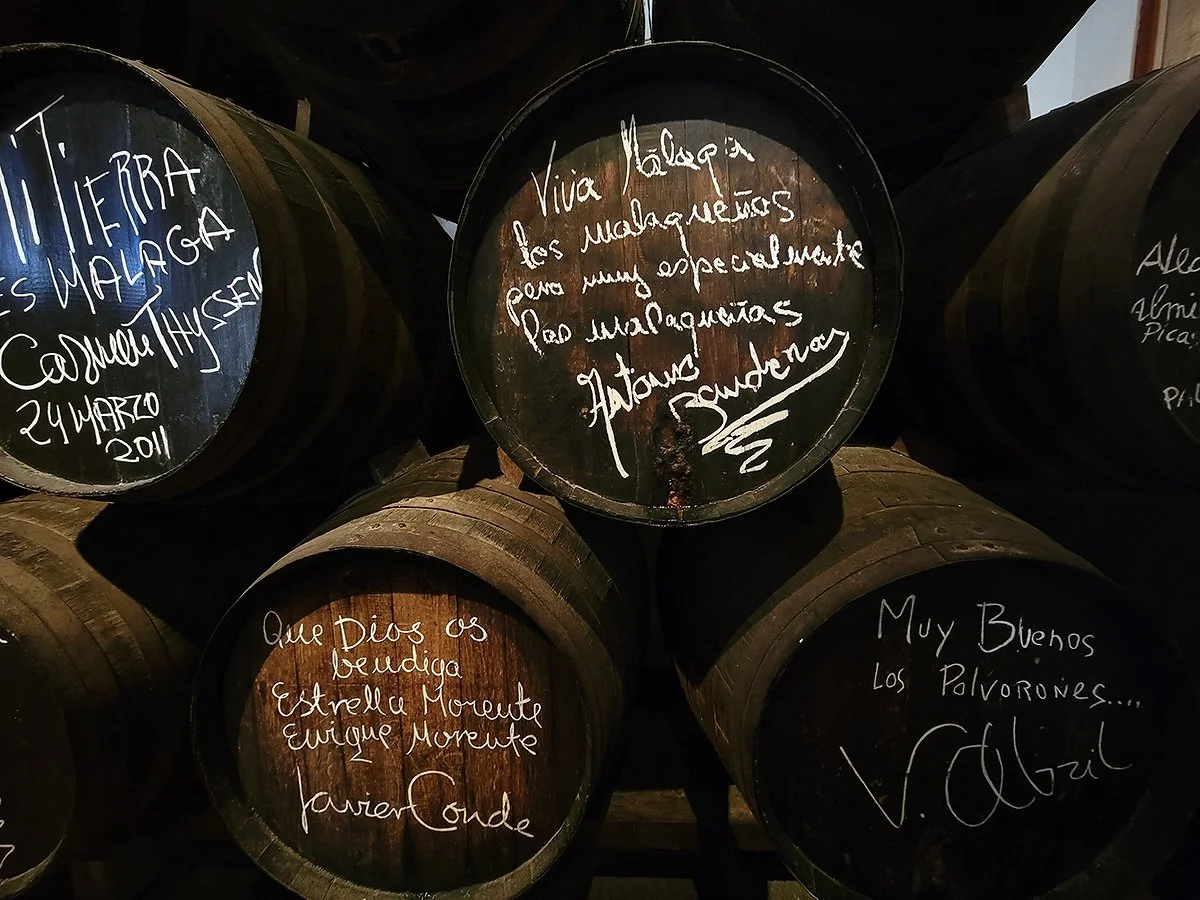 Mi TIERRA
ES MALAGA
Carmen THYSSEN
24 MARZO
2011
Viva Málaga
los malagueños
pero muy especialmente
las malagueñas
Antonio
Banderas
Que Dios os
bendiga
Estrella Morente
Enrique Morente
Javier Conde
Muy Buenos
Los Polvorones....
V. Abril